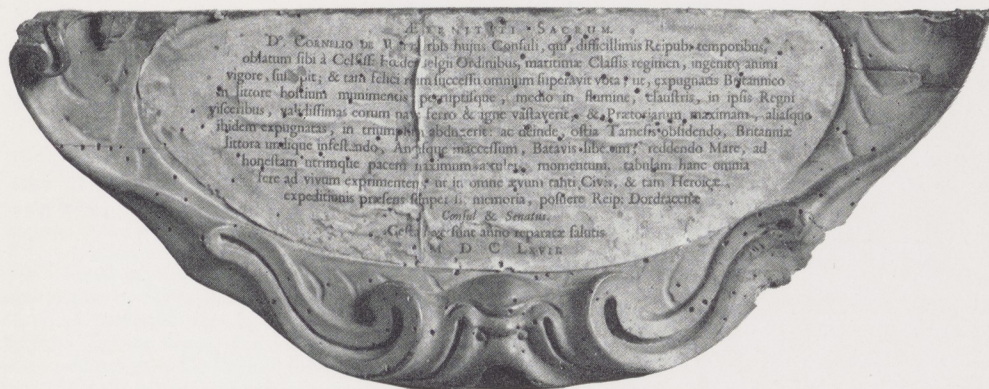 ÆTERNITATI SACRUM.
Dº. CORNELIO DE urbis hujus Consuli, qui, difficillimis Reipub. temporibus,
oblatum sibi à Celsiss. Fœder. Belgii Ordinibus, maritimæ Classis regimen, ingenito animi
vigore, suscepit; & tam felici rerum successu omnium superavit vota: ut, expugnatis Britannico
in littore hostium munimentis, perruptisque, medio in flumine, claustris, in ipsis Regni
visceribus, validissimas eorum naves ferro & igne vastaverit, & Prætoriarum maximam, aliasque
ibidem expugnatas, in triumphum abduxerit: ac deinde, ostia Tamesis obsidendo, Britanniæ
littora undique infestando, Anglisque inaccessum, Batavis liberum reddendo Mare, ad
honestam utrimque pacem maximum attulerit momentum. tabulam hanc omnia
fere ad vivum exprimentem, ut in omne ævum tanti Civis, & tam Heroicæ,
expeditionis præsens semper sit memoria, posuere Reip: Dordracenæ
Consul & Senatus.
Gesta hæc sunt anno reparatæ salutis
M D C LXVII.